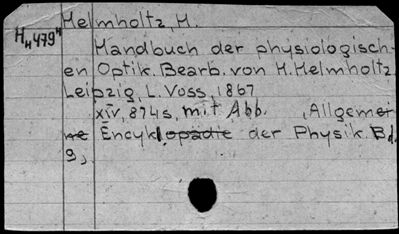 Helmholtz, H.
H H 479 H
Handbuch der physiologisch-
en Optik. Bearb. von H. Helmholtz
Leipzig, L. Voss, 1867
XIV, 874 s, mit Abb. , Allgemei
ne Encyklopädie der Physik. Bd.
9,